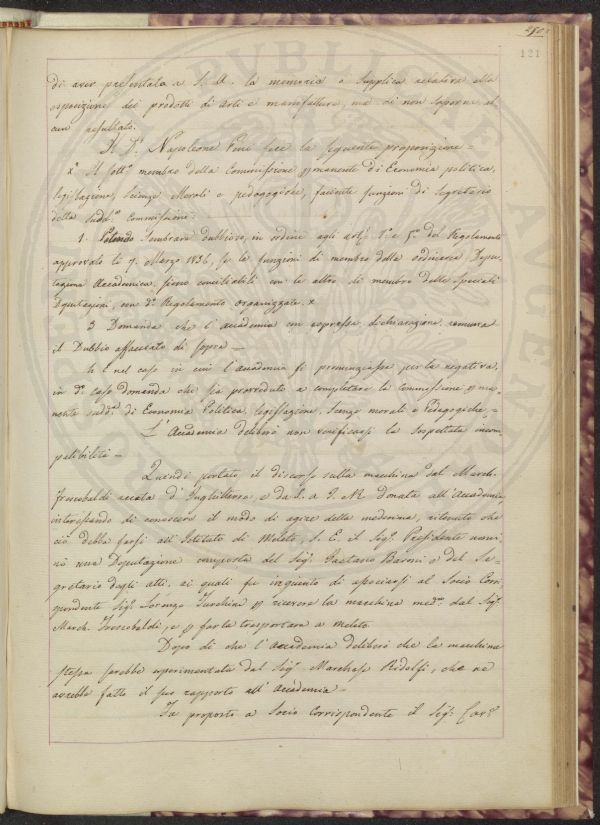 121
di aver presentata a S. A. la memoria o supplica relativa alla
esposizione dei prodotti di arti e manifatture, ma di non saperne al-
cun resultato.
Il Dr. Napoleone Pini fece la seguente proposizione =
Il sotto membro della Commissione pmanente di Economia politica,
legislazione, Scienze Morali e pedagogiche, facente funzioni di Segretario
della sudda Commissione:
1. Potendo sembrare dubbioso, in ordine agli artli 1o e 5o del Regolamento
approvato li 7. Marzo 1836, se le funzioni di membro della ordinaria Depu-
tazione Accademica, sieno conciliabili con le altre di membro delle speciali
Deputazioni, con do Regolamento organizzate. x
3 Domanda che l'Accademia con espressa dichiarazione remuova
il Dubbio affacciato di sopra —
E nel caso in cui l'Accademia si pronunziasse per la negativa,
in do caso domanda che sia provveduto a completare la Commissione pma-
nente sudda di Economia Politica, legislazione, Scienze morali e Pedagogiche, =
L'Accademia deliberò non verificarsi la sospettata incom-
patibilità —
Quindi portato il discorso sulla macchina dal March.
Frescobaldi recata d'Inghilterra e da S. A. I. e R. donata all'Accademia,
interessando di conoscere il modo di agire della medesima, ritenuto che
ciò debba farsi all'Istituto di Meleto, S. E. il Sigr. Presidente nomi-
nò una Deputazione composta del Sigr. Gaetano Baroni e del Se-
gretario degli atti, ai quali fu ingiunto di associarsi al Socio Corri-
spondente Sigr. Lorenzo Turchini p ricevere la macchina meda dal Sigr.
March. Frescobaldi, e p farla trasportare a Meleto.
Dopo di che l'Accademia deliberò che la macchina
stessa sarebbe esperimentata dal Sigr. Marchese Ridolfi, che ne
avrebbe fatto il suo rapporto all'Accademia —
Fu proposto a Socio Corrispondente il Sigr. Cave